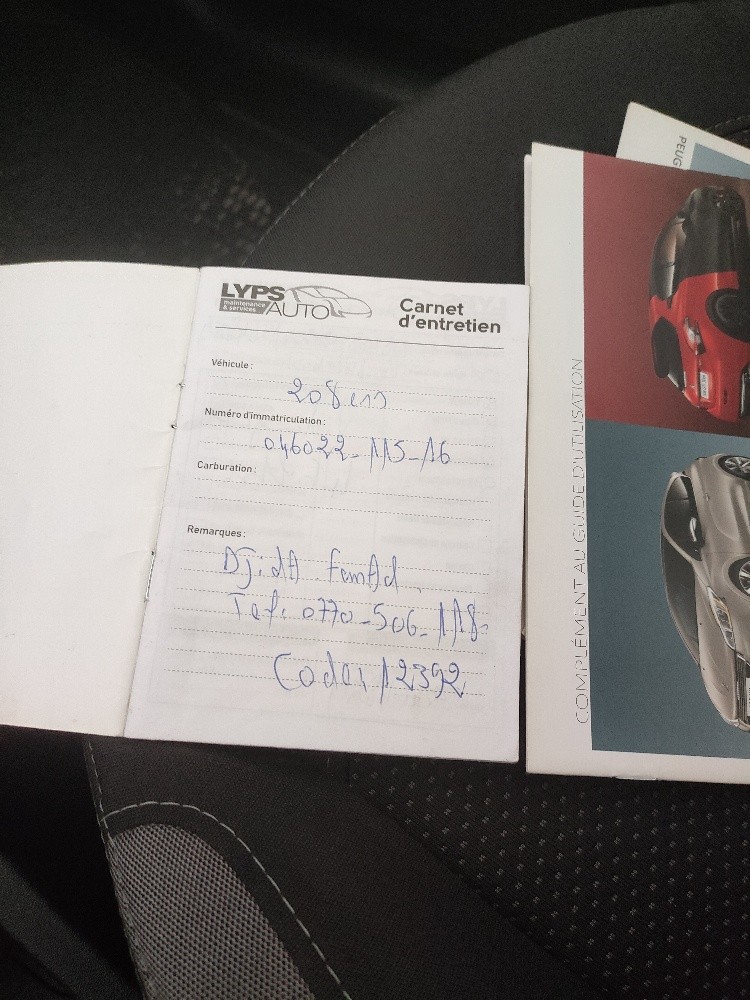 LYPS
maintenance
& services
AUTO
Carnet
d'entretien
Véhicule :
208 ess
Numéro d'immatriculation :
046022-115-16
Carburation :
Remarques :
Tel. 0770-506-118
Code: 12392
PEUG
COMPLÉMENT AU GUIDE D'UTILISATION